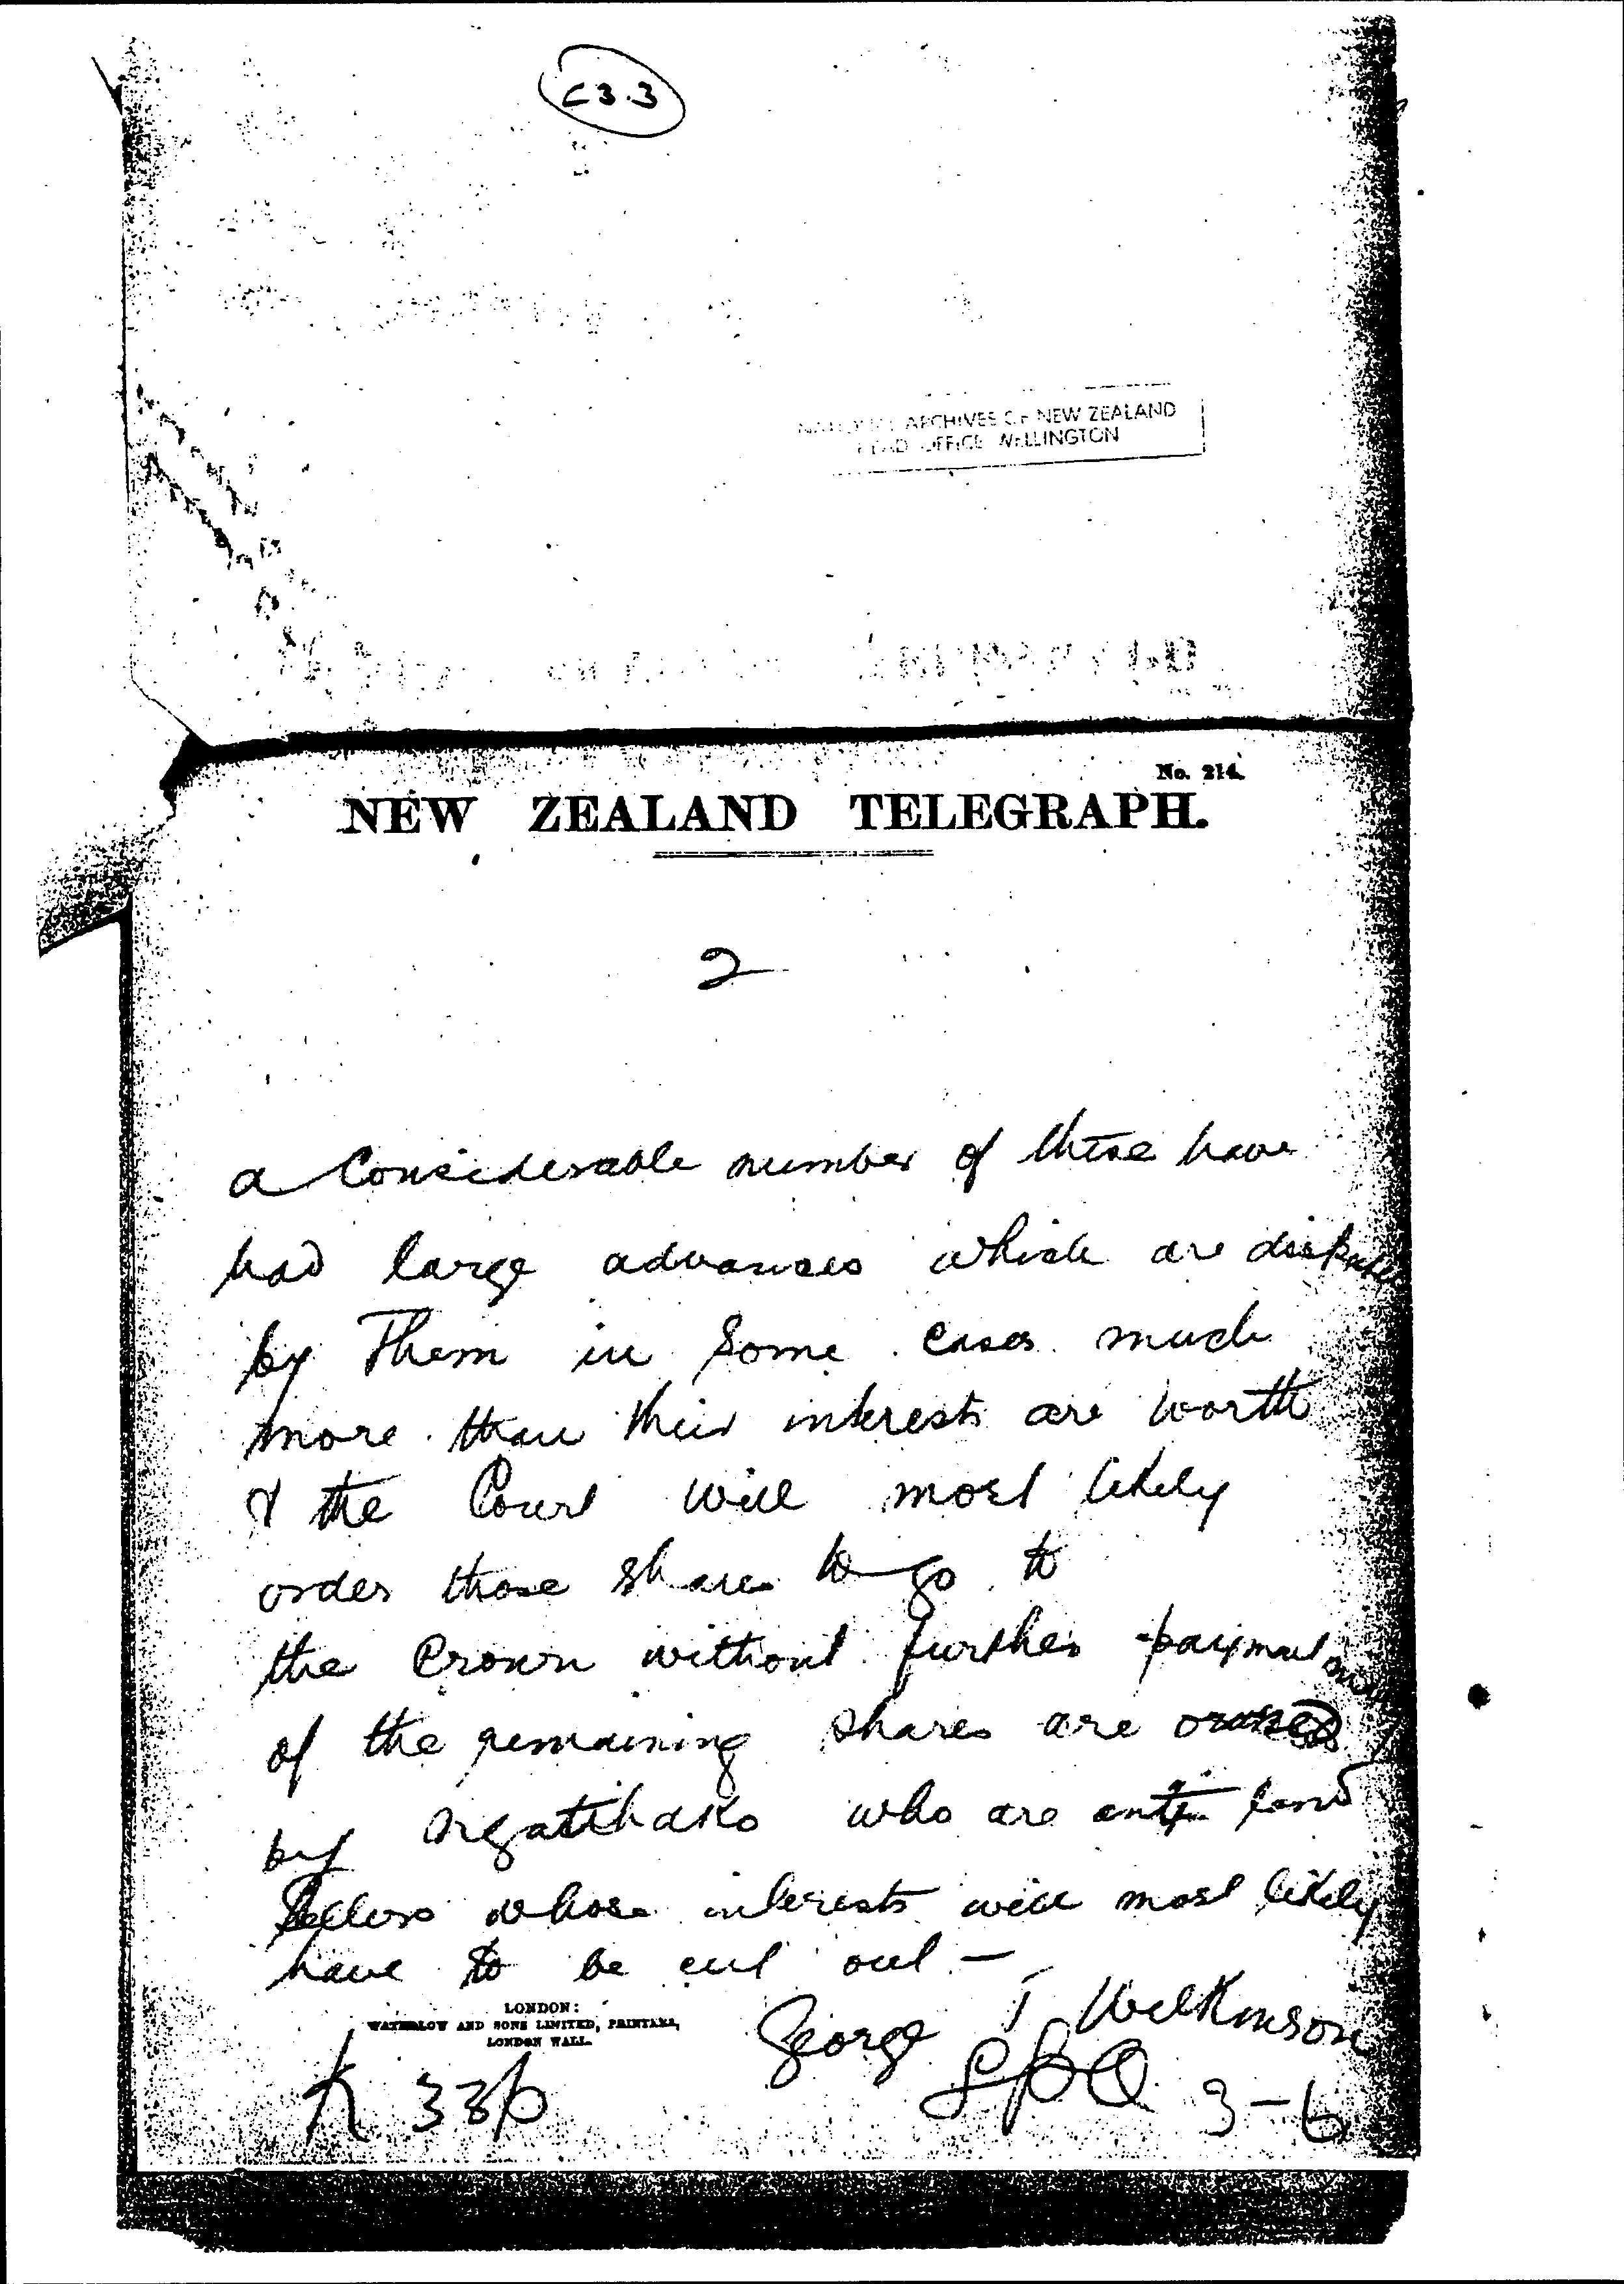 C3.3
ARCHIVES OF NEW ZEALAND
HEAD OFFICE WELLINGTON
No. 214.
NEW ZEALAND TELEGRAPH.
2
a Considerable number of these have
had large advances which are disputed
by Them in Some cases much
more than their interests are worth
& the Court will most likely
order those shares to go to
the Crown without further payment
of the remaining shares are owned
by Ngatihako who are anti land
Sellers whose interests will most likely
have to be cut out —
George T Wilkinson
LONDON:
WATERLOW AND SONS LIMITED, PRINTERS,
LONDON WALL.
LPO 3-6